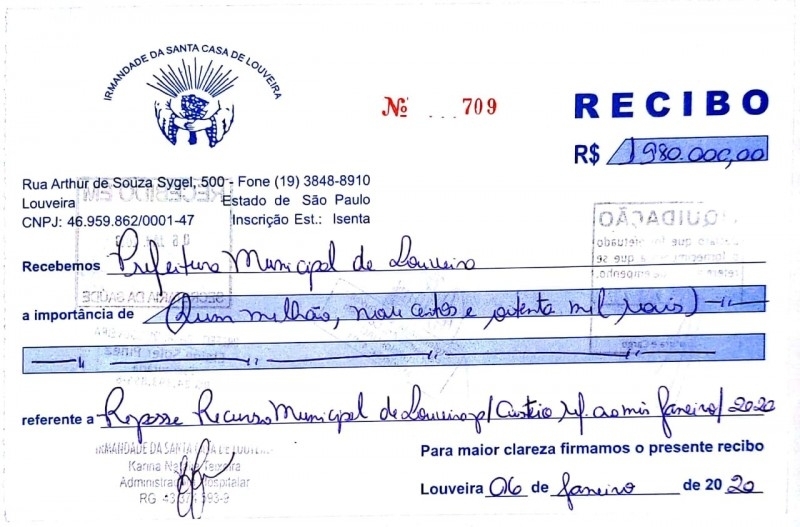 IRMANDADE DA SANTA CASA DE LOUVEIRA
Nº ...709
RECIBO
R$ 1980.000,00
Rua Arthur de Souza Sygel, 500 - Fone (19) 3848-8910
Louveira Estado de São Paulo
CNPJ: 46.959.862/0001-47 Inscrição Est.: Isenta
RECEBIDO EM
LIQUIDAÇÃO
Recebemos Prefeitura Municipal de Louveira
SECRETARIA DA SAÚDE
a importância de (Hum milhão, novecentos e oitenta mil reais)
referente a Repasse Recurso Municipal de Louveira p/ Custeio ref. ao mês Janeiro/2020
IRMANDADE DA SANTA CASA DE LOUVEIRA
Karina Teixeira
Administra Hospitalar
RG 593-9
Para maior clareza firmamos o presente recibo
Louveira 06 de Janeiro de 2020